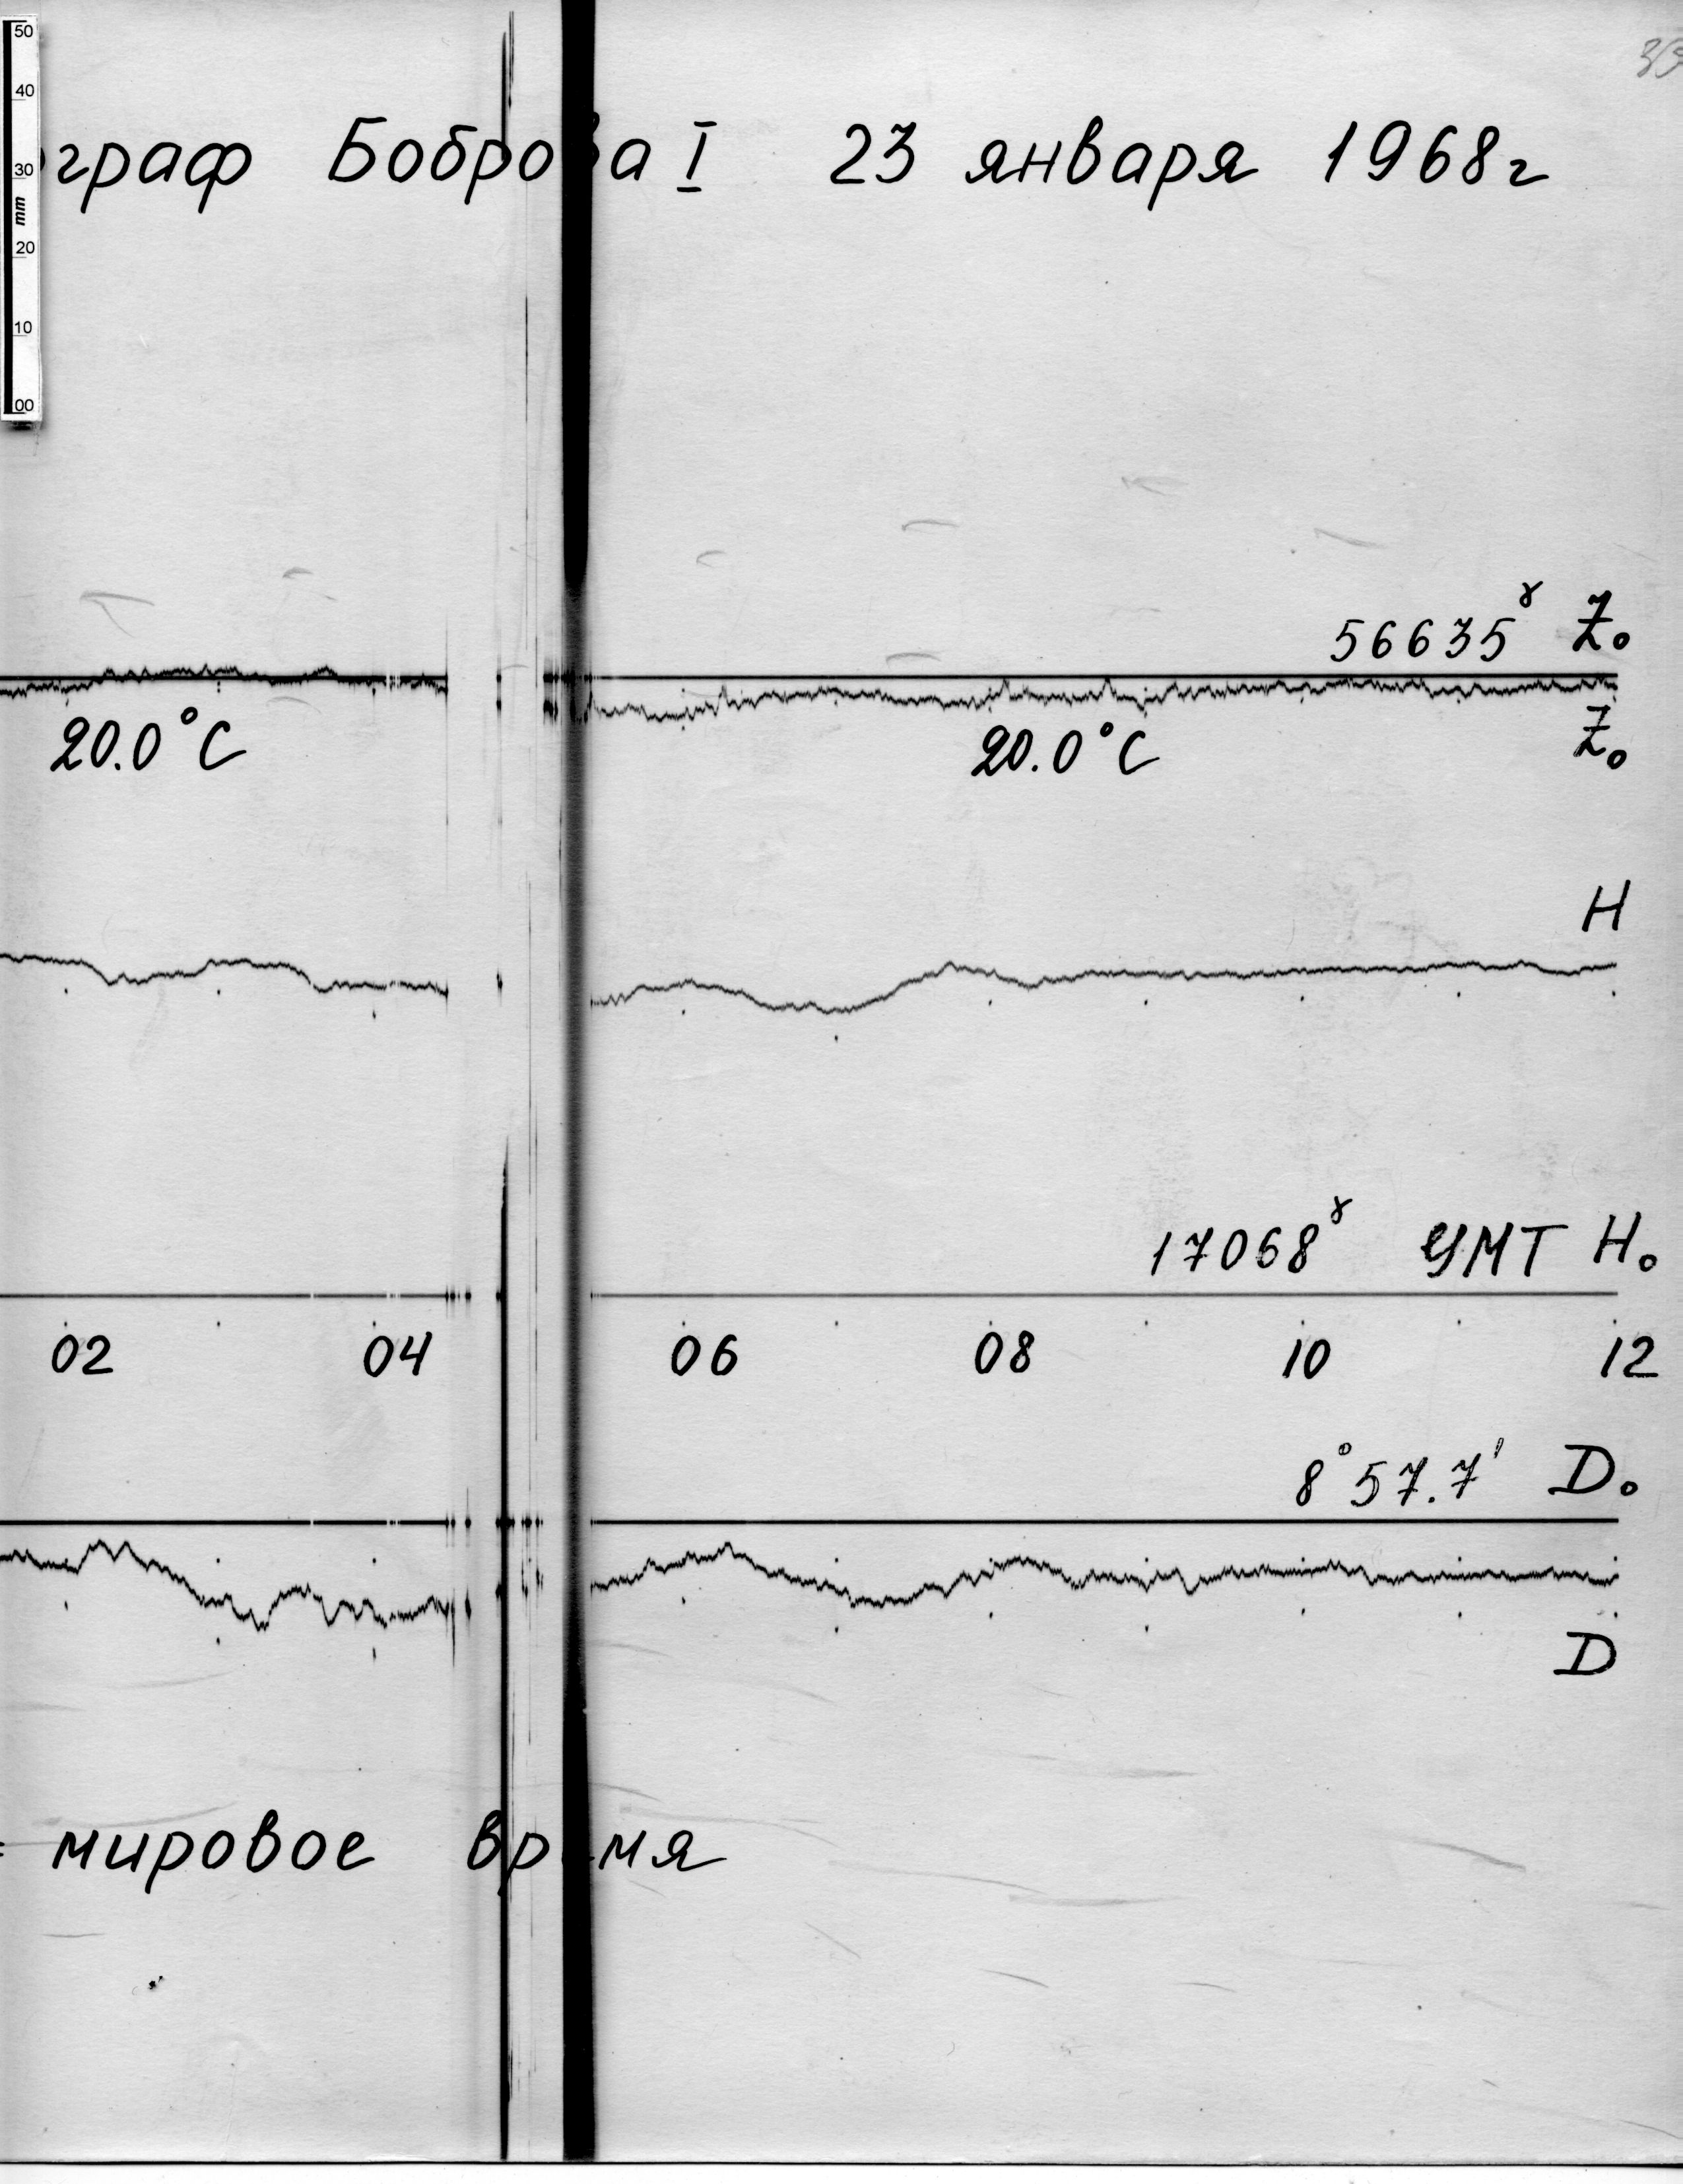 50
40
30
mm
20
10
00
ограф Боброва I 23 января 1968г
56635ᵞ Z₀
20.0°C 20.0°C Z₀
H
17068ᵞ УМТ H₀
02 04 06 08 10 12
8°57.7' D₀
D
= мировое время